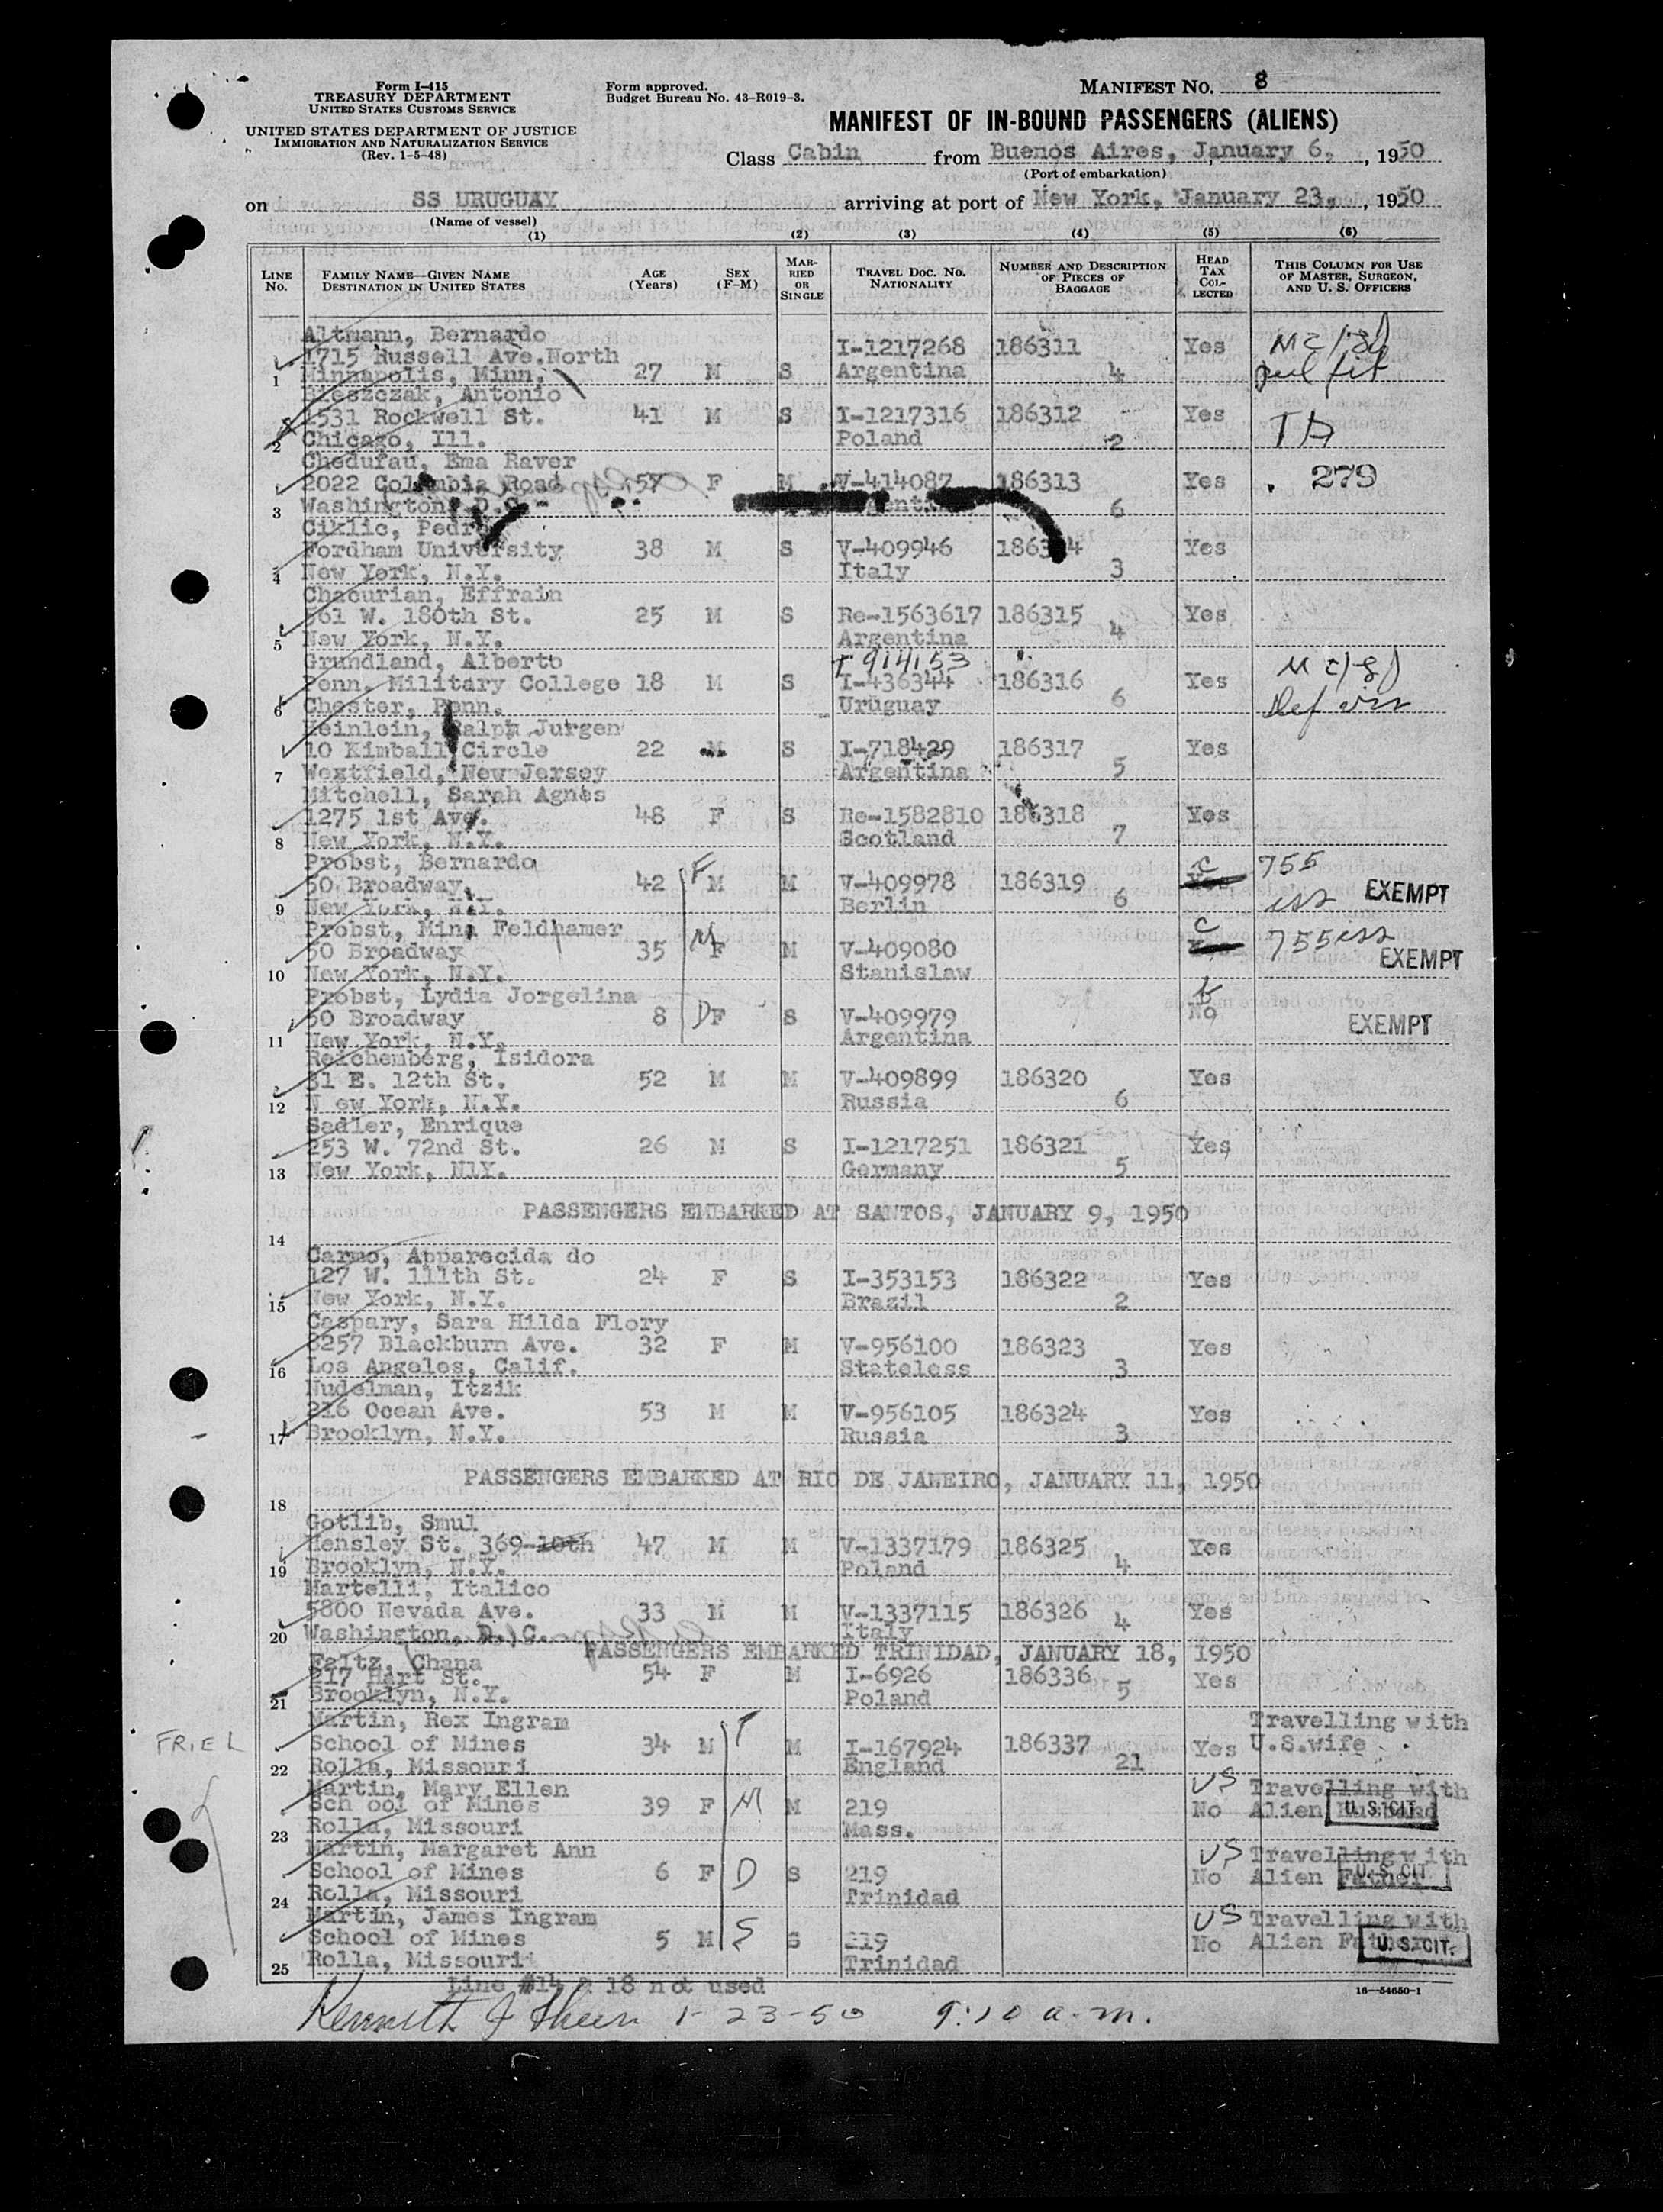 Form I-415
TREASURY DEPARTMENT
UNITED STATES CUSTOMS SERVICE
UNITED STATES DEPARTMENT OF JUSTICE
IMMIGRATION AND NATURALIZATION SERVICE
(Rev. 1-5-48)
Form approved.
Budget Bureau No. 43-R019-3.
MANIFEST NO. 8
MANIFEST OF IN-BOUND PASSENGERS (ALIENS)
Class Cabin from Buenos Aires, January 6, , 1950
(Port of embarkation)
on SS URUGUAY arriving at port of New York, January 23, , 1950
(Name of vessel)
(1) (2) (3) (4) (5) (6)
LINE No. FAMILY NAME—GIVEN NAME DESTINATION IN UNITED STATES AGE (Years) SEX (F-M) MARRIED OR SINGLE TRAVEL DOC. NO. NATIONALITY NUMBER AND DESCRIPTION OF PIECES OF BAGGAGE HEAD TAX COLLECTED THIS COLUMN FOR USE OF MASTER, SURGEON, AND U. S. OFFICERS
Altmann, Bernardo
1715 Russell Ave.North I-1217268 186311 Yes
1 Minnapolis, Minn. 27 M S Argentina 4
Bleszczak, Antonio
1531 Rockwell St. 41 M S I-1217316 186312 Yes
2 Chicago, Ill. Poland 2
Chedufau, Ema Raver
2022 Columbia Road 57 F M V-414087 186313 Yes 279
3 Washington, D.C. Argentina 6
Ciklic, Pedro
Fordham University 38 M S V-409946 186314 Yes
4 New York, N.Y. Italy 3
Chacurian, Effrain
561 W. 180th St. 25 M S Re-1563617 186315 Yes
5 New York, N.Y. Argentina 4
Grundland, Alberto I 914153
Penn. Military College 18 M S I-436344 186316 Yes
6 Chester, Penn. Uruguay 6
Heinlein, Ralph Jurgen
10 Kimball Circle 22 M S I-718429 186317 Yes
7 Westfield, New Jersey Argentina 5
Mitchell, Sarah Agnes
1275 1st Ave. 48 F S Re-1582810 186318 Yes
8 New York, N.Y. Scotland 7
Probst, Bernardo F C 755
50 Broadway, 42 M M V-409978 186319 Yes iss EXEMPT
9 New York, N.Y. Berlin 6
Probst, Mina Feldhamer M C 755 iss
50 Broadway 35 F M V-409080 EXEMPT
10 New York, N.Y. Stanislaw
Probst, Lydia Jorgelina
50 Broadway 8 D F S V-409979 No EXEMPT
11 New York, N.Y. Argentina
Reichemberg, Isidora
31 E. 12th St. 52 M M V-409899 186320 Yes
12 N ew York, N.Y. Russia 6
Sadler, Enrique
253 W. 72nd St. 26 M S I-1217251 186321 Yes
13 New York, N1Y. Germany 5
PASSENGERS EMBARKED AT SANTOS, JANUARY 9, 1950
14
Carmo, Apparecida do
127 W. 111th St. 24 F S I-353153 186322 Yes
15 New York, N.Y. Brazil 2
Caspary, Sara Hilda Flory
8257 Blackburn Ave. 32 F M V-956100 186323 Yes
16 Los Angeles, Calif. Stateless 3
Nudelman, Itzik
216 Ocean Ave. 53 M M V-956105 186324 Yes
17 Brooklyn, N.Y. Russia 3
PASSENGERS EMBARKED AT RIO DE JANEIRO, JANUARY 11, 1950
18
Gotlib, Smul
Hensley St. 369-10th 47 M M V-1337179 186325 Yes
19 Brooklyn, N.Y. Poland 4
Martelli, Italico
5800 Nevada Ave. 33 M M V-1337115 186326 Yes
20 Washington, D. C. Italy 4
PASSENGERS EMBARKED TRINIDAD, JANUARY 18, 1950
Faltz, Chana
217 Hart St. 54 F M I-6926 186336 Yes
21 Brooklyn, N.Y. Poland 5
Martin, Rex Ingram Travelling with
FRIEL School of Mines 34 M M I-167924 186337 Yes U.S.wife
22 Rolla, Missouri England 21
Martin, Mary Ellen US Travelling with
Sch ool of Mines 39 F M M 219 No Alien Husband U.S.CIT.
23 Rolla, Missouri Mass.
Martin, Margaret Ann US Travelling with
School of Mines 6 F D S 219 No Alien Father U.S.CIT.
24 Rolla, Missouri Trinidad
Martin, James Ingram US Travelling with
School of Mines 5 M S S 219 No Alien Father U.S.CIT.
25 Rolla, Missouri Trinidad
Line #14 & 18 not used
16—54650-1
Kenneth J 1-23-50 9:10 a.m.